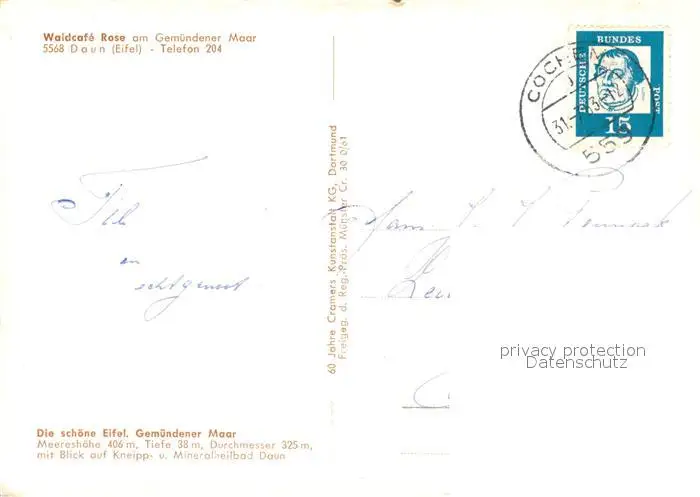 Waldcafé Rose am Gemündener Maar
5568 Daun (Eifel) - Telefon 204
DEUTSCHE BUNDES POST
15
COCHEM
559
en
echtgenoot
60 Jahre Cramers Kunstanstalt KG, Dortmund
Freigeg. d. Reg.-Präs. Münster Cr. 30 0/61
Fam.
privacy protection
Datenschutz
Die schöne Eifel. Gemündener Maar
Meereshöhe 406 m, Tiefe 38 m, Durchmesser 325 m,
mit Blick auf Kneipp- u. Mineralheilbad Daun